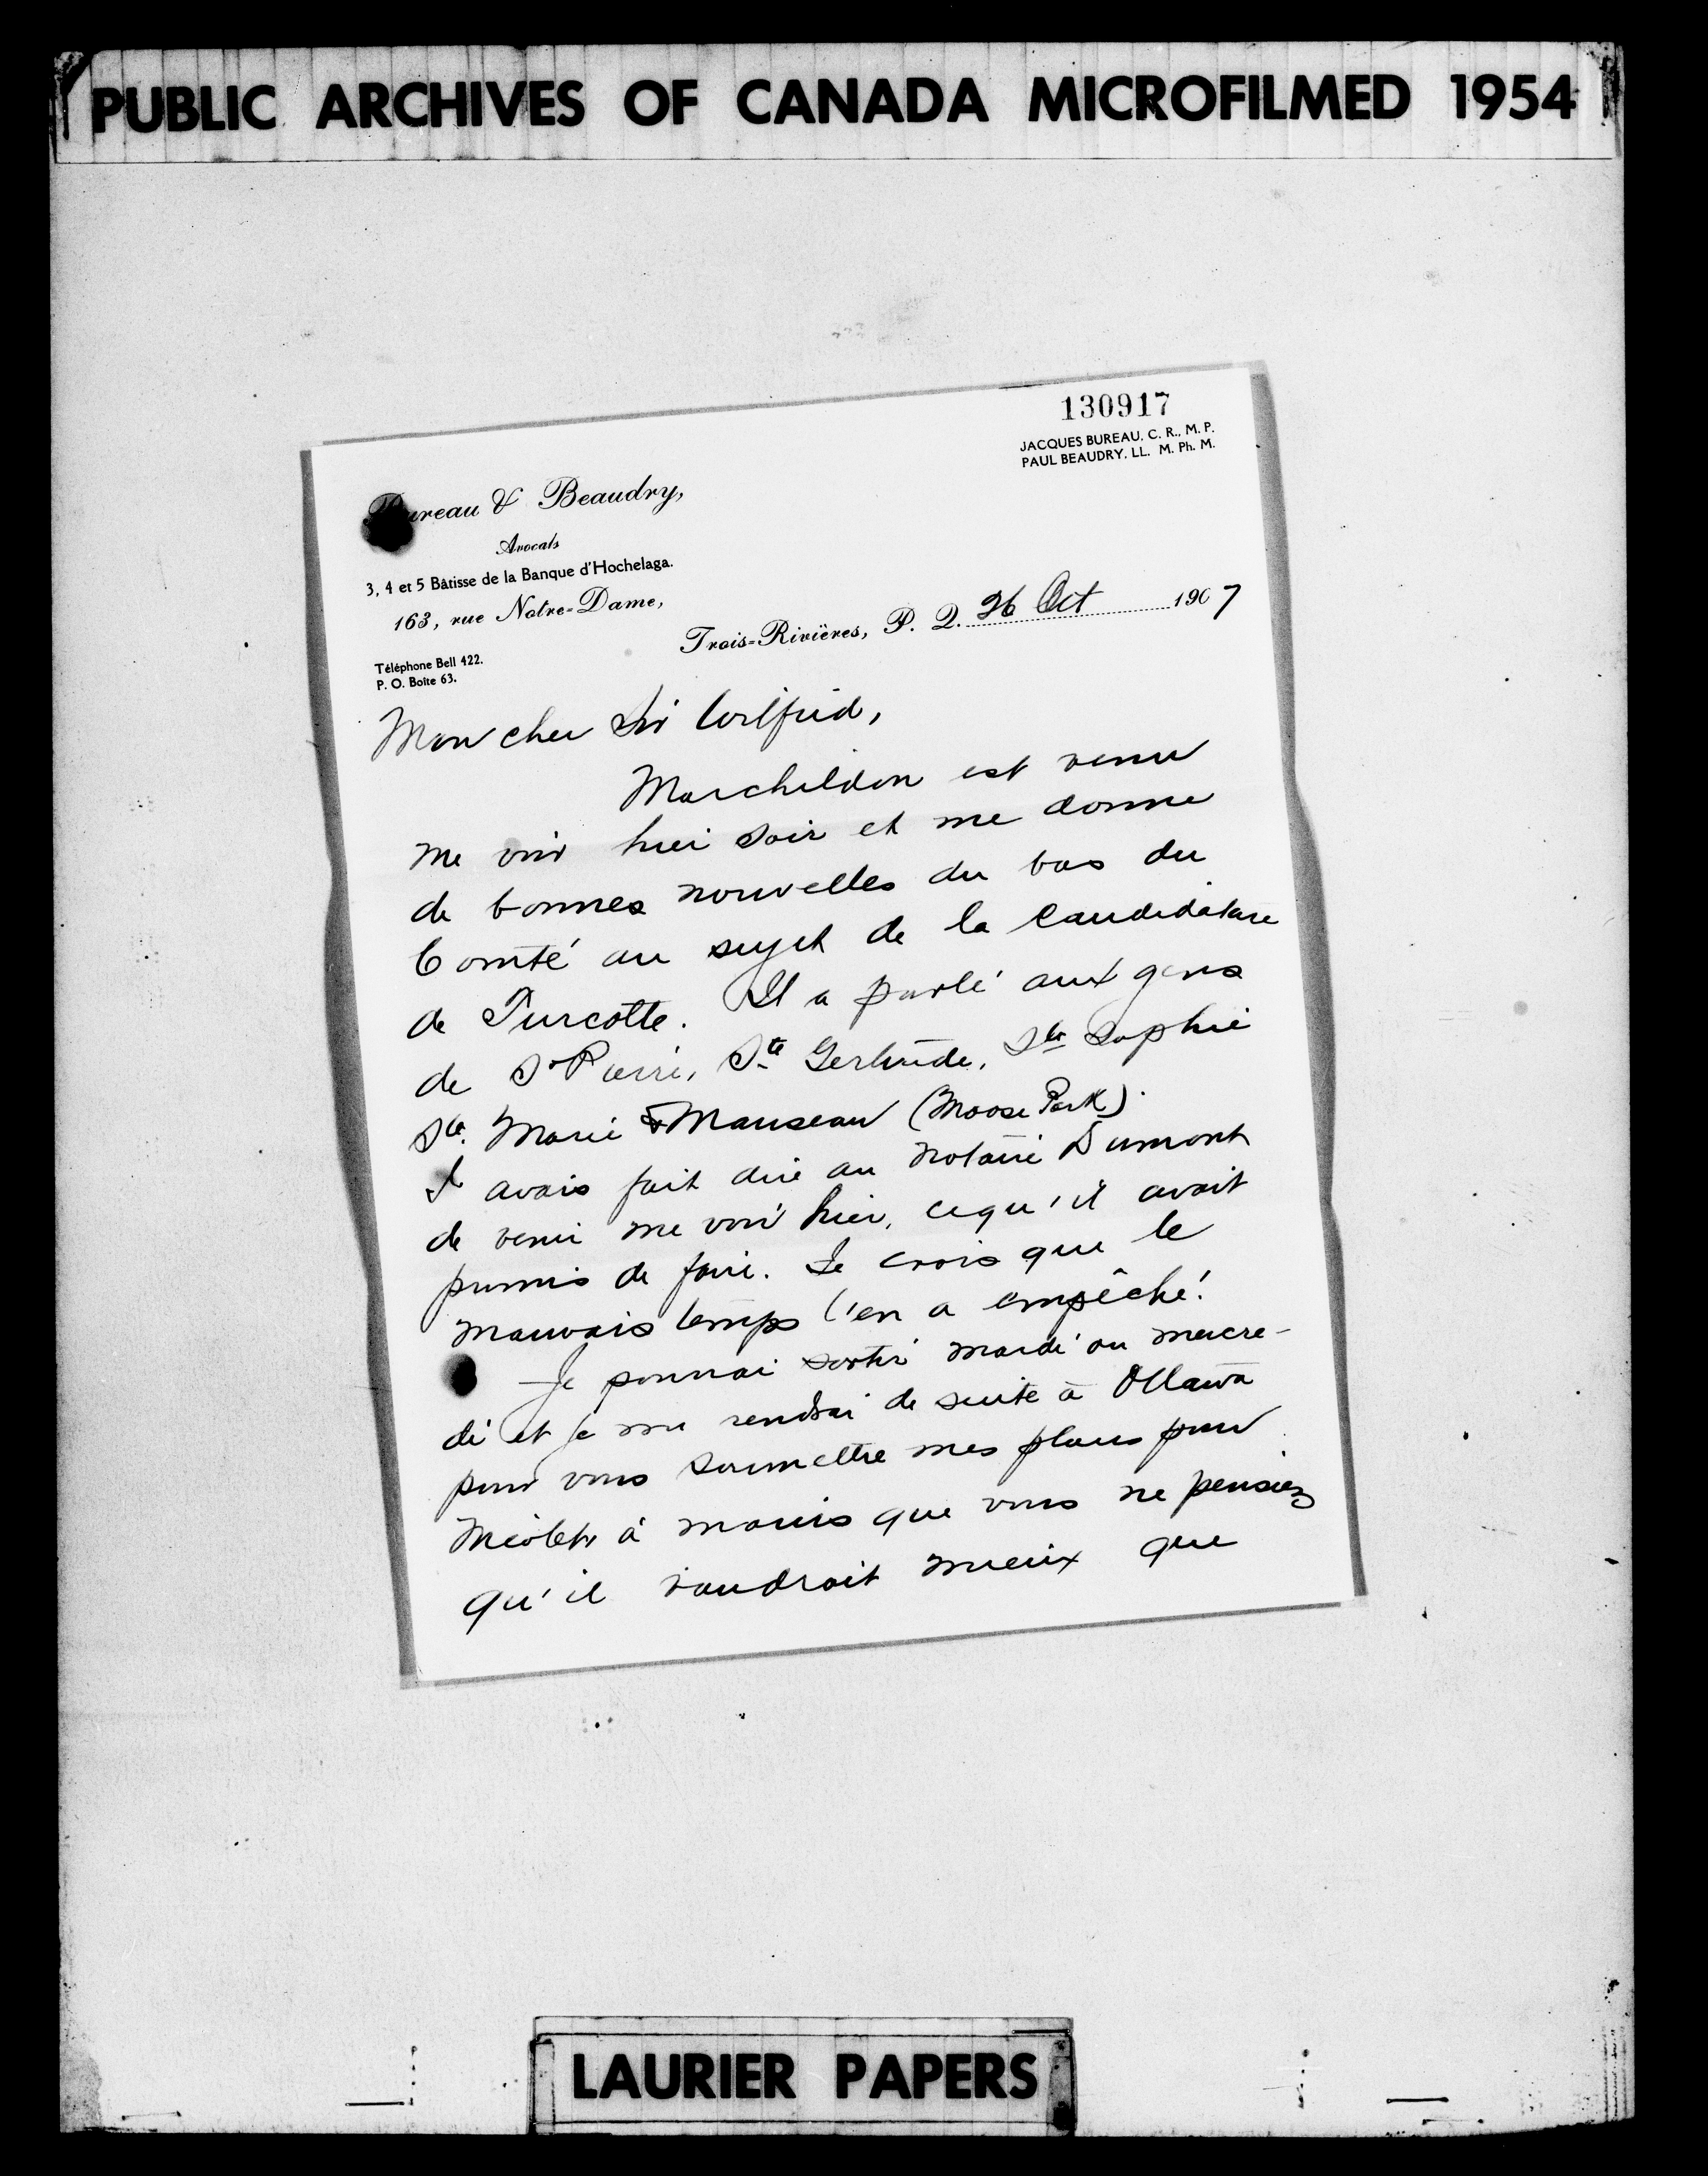 PUBLIC ARCHIVES OF CANADA MICROFILMED 1954
130917
JACQUES BUREAU, C. R., M. P.
PAUL BEAUDRY, LL. M. Ph. M.
Bureau & Beaudry,
Avocats
3, 4 et 5 Bâtisse de la Banque d'Hochelaga.
163, rue Notre-Dame,
Trois-Rivières, P. Q. 26 Oct 1907
Téléphone Bell 422.
P. O. Boîte 63.
Mon cher Sir Wilfrid,
Marchildon est venu
me voir hier soir et me donne
de bonnes nouvelles du bas du
Comté au sujet de la Candidature
de Turcotte. Il a parlé aux gens
de St Pierre, Ste Gertrude, Ste Sophie
Ste Marie & Manseau (Moose Park).
J avais fait dire au notaire Dumont
de venir me voir hier, ce qu'il avait
promis de faire. Je crois que le
mauvais temps l'en a empêché.
Je pourrai sortir mardi ou mercre-
di et je me rendrai de suite à Ottawa
pour vous soumettre mes plans pour
Nicolet à moins que vous ne pensiez
qu'il vaudrait mieux que
LAURIER PAPERS